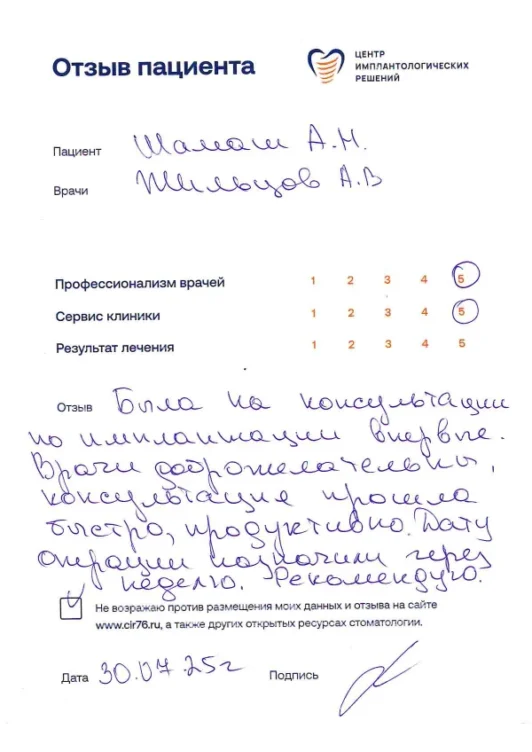 Отзыв пациента
ЦЕНТР
ИМПЛАНТОЛОГИЧЕСКИХ
РЕШЕНИЙ
Пациент Шамаш А.Н.
Врачи Жильцов А.В
Профессионализм врачей 1 2 3 4 5
Сервис клиники 1 2 3 4 5
Результат лечения 1 2 3 4 5
Отзыв Была на консультации
по имплантации впервые.
Врачи доброжелательны,
консультация прошла
быстро, продуктивно. Дату
операции назначили через
неделю. Рекомендую.
Не возражаю против размещения моих данных и отзыва на сайте
www.cir76.ru, а также других открытых ресурсах стоматологии.
Дата 30.07.25г Подпись